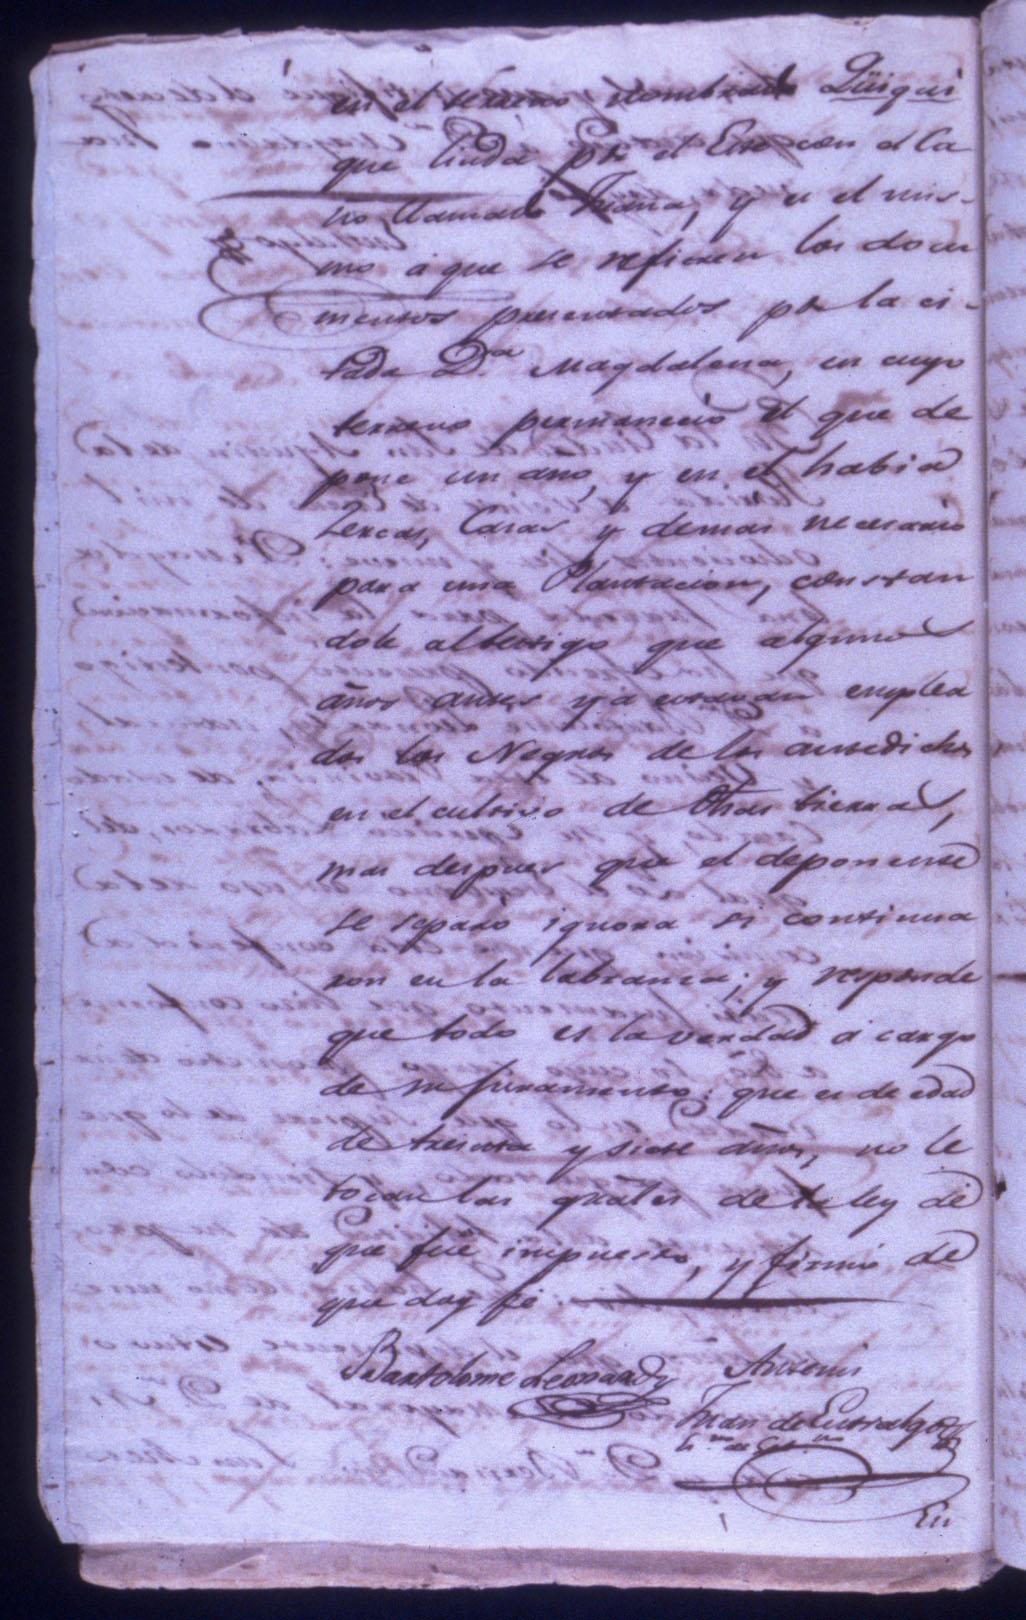 en el terreno nombrado Qüiqui
que linda pr. el Este con el Ca
ño llamado Triana, y es el mis-
mo á que se refieren los docu
mentos presentados pr. la ci-
tada Da. Magdalena, en cuyo
terreno permaneció el que de
pone un año, y en el habia
Cercas, Casas y demas necesario
para una Plantacion, constan
dole al testigo que algunos
años antes ya estaban emplea
dos los Negros de los antedichos
en el cultivo de dhas tierras,
mas despues que el deponente
se separó ignora si continua
ron en la labranza; y responde
que todo es la verdad á cargo
de su juramento: que es de edad
de treinta y siete años, no le
tocan las grales de la ley de
que fué impuesto, y firmó de
que doy fé.
Bartolome Leonardy Ante mi
Juan de Entralgo
En